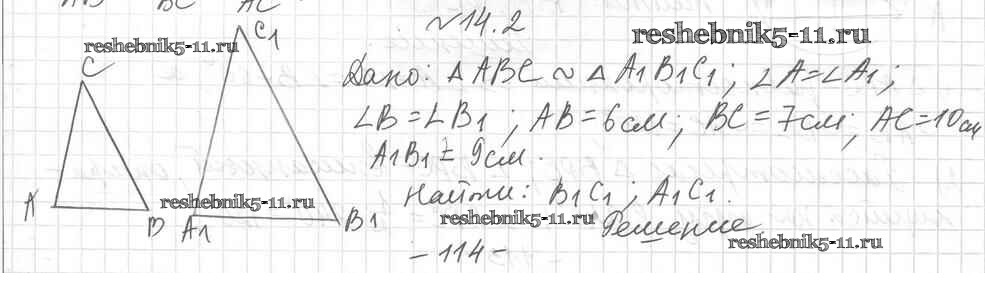 AB BC AC
C1
№14.2
reshebnik5-11.ru
reshebnik5-11.ru
C
Дано: △ABC ~ △A1B1C1; ∠A=∠A1;
∠B=∠B1; AB=6см; BC=7см; AC=10см
A1B1 = 9см.
Найти: B1C1; A1C1.
A B A1 B1
reshebnik5-11.ru
reshebnik5-11.ru
Решение
reshebnik5-11.ru
-114-